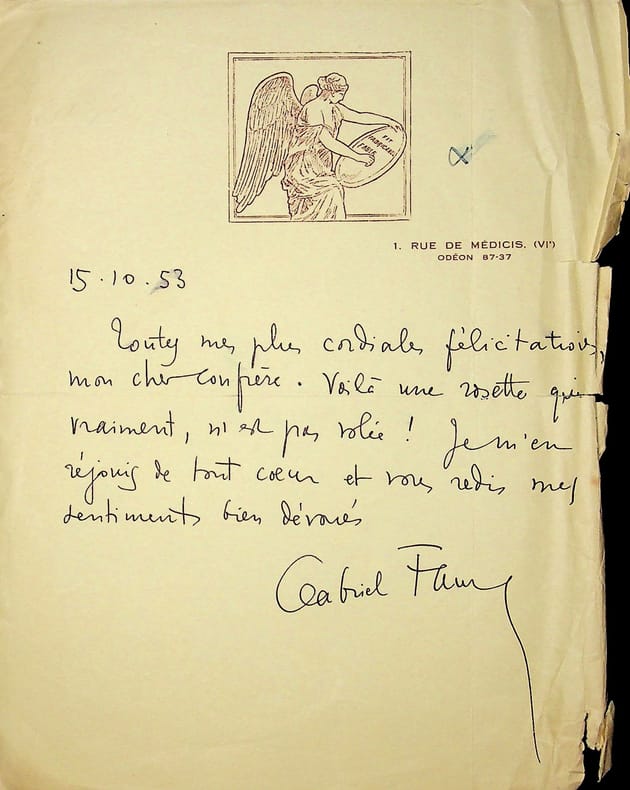 FIT
FABRICANDO
FABER
1. RUE DE MÉDICIS. (VIᵉ)
ODÉON 87-37
15.10.53
Toutes mes plus cordiales félicitations,
mon cher confrère. Voilà une rosette qui
vraiment, n'est pas volée ! Je m'en
réjouis de tout coeur et vous redis mes
sentiments bien dévoués
Gabriel Faure